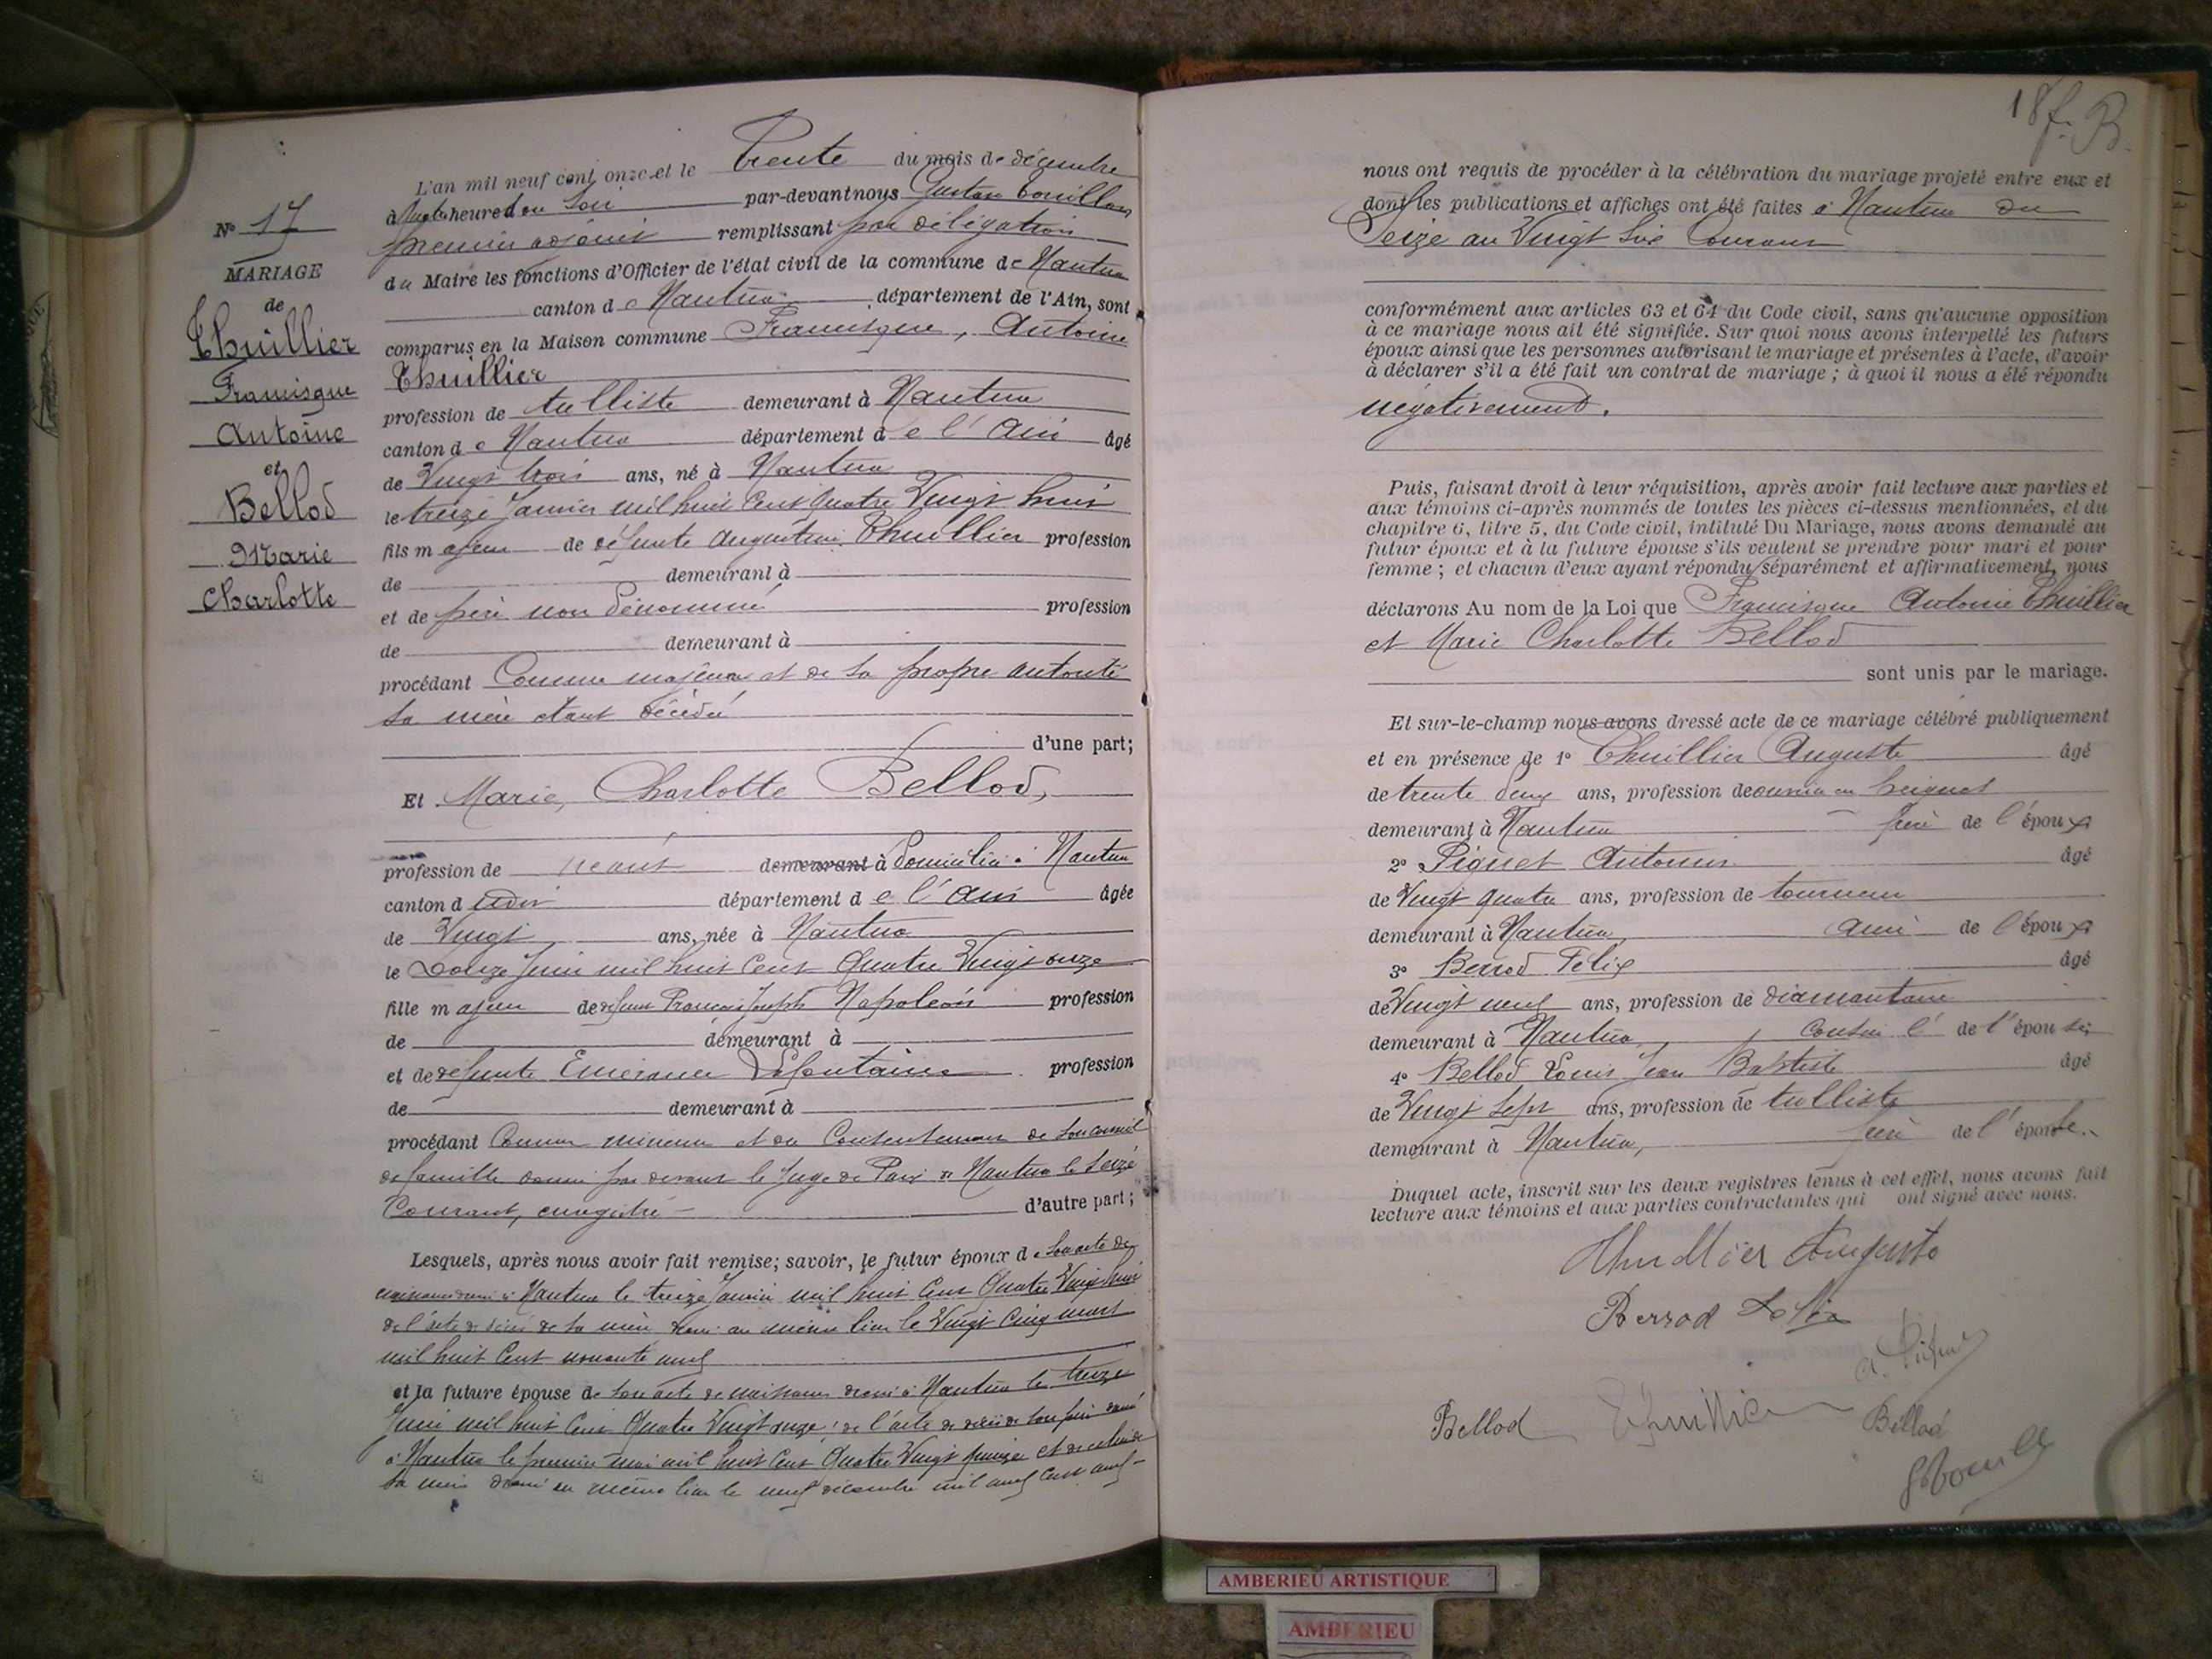 L'an mil neuf cent onze et le Trente du mois de décembre
à heure du Soir par-devant nous Gustave Touillon
premier adjoint remplissant par délégation
du Maire les fonctions d'Officier de l'état civil de la commune de Nantua
canton de Nantua département de l'Ain, sont
comparus en la Maison commune Francisque, Antoine
Thuillier
profession de tulliste demeurant à Nantua
canton de Nantua département de l'Ain âgé
de Vingt trois ans, né à Nantua
le treize Janvier mil huit Cent quatre Vingt huit
fils majeur de défunte Augustine Thuillier profession
de demeurant à
et de père non dénommé profession
de demeurant à
procédant Comme majeur et de sa propre autorité
sa mère étant décédée
d'une part;
Et Marie, Charlotte Bellod,
profession de néant demeurant à domiciliée à Nantua
canton dudit département de l'Ain âgée
de Vingt ans, née à Nantua
le Douze Juin mil huit Cent Quatre Vingt onze
fille majeure de défunt François Joseph Napoléon profession
de demeurant à
et de défunte Emerance Lafontaine profession
de demeurant à
procédant Comme mineure et du Consentement de son conseil
de famille donné par devant le Juge de Paix de Nantua le seize
Courant, enregistré
d'autre part;
Lesquels, après nous avoir fait remise; savoir, le futur époux de son acte de
naissance dressé à Nantua le treize Janvier mil huit Cent Quatre Vingt huit
de l'acte de décès de sa mère dressé au même lieu le Vingt Cinq mars
mil huit Cent nonante neuf
et la future épouse de son acte de naissance dressé à Nantua le treize
Juin mil huit Cent Quatre Vingt onze; de l'acte de décès de son père dressé
à Nantua le premier mai mil huit Cent Quatre Vingt quinze et de celui de
sa mère dressé au même lieu le neuf décembre mil neuf Cent neuf
N° 17
MARIAGE
de
Thuillier
Francisque
Antoine
et
Bellod
Marie
Charlotte
18 f. B.
nous ont requis de procéder à la célébration du mariage projeté entre eux et
dont les publications et affiches ont été faites à Nantua du
Seize au Vingt Six Courant
conformément aux articles 63 et 64 du Code civil, sans qu'aucune opposition
à ce mariage nous ait été signifiée. Sur quoi nous avons interpellé les futurs
époux ainsi que les personnes autorisant le mariage et présentes à l'acte, d'avoir
à déclarer s'il a été fait un contrat de mariage; à quoi il nous a été répondu
négativement.
Puis, faisant droit à leur réquisition, après avoir fait lecture aux parties et
aux témoins ci-après nommés de toutes les pièces ci-dessus mentionnées, et du
chapitre 6, titre 5, du Code civil, intitulé Du Mariage, nous avons demandé au
futur époux et à la future épouse s'ils veulent se prendre pour mari et pour
femme; et chacun d'eux ayant répondu séparément et affirmativement, nous
déclarons Au nom de la Loi que Francisque Antoine Thuillier
et Marie Charlotte Bellod
sont unis par le mariage.
Et sur-le-champ nous avons dressé acte de ce mariage célébré publiquement
et en présence de 1° Thuillier Auguste âgé
de trente deux ans, profession de ouvrier en peignes
demeurant à Nantua frère de l'époux
2° Piquet Antonin âgé
de Vingt quatre ans, profession de tourneur
demeurant à Nantua ami de l'époux
3° Berrod Félix âgé
de Vingt neuf ans, profession de diamantaire
demeurant à Nantua, Cousin de l'épouse;
4° Bellod Louis Jean Baptiste âgé
de Vingt sept ans, profession de tulliste
demeurant à Nantua, frère de l'épouse.
Duquel acte, inscrit sur les deux registres tenus à cet effet, nous avons fait
lecture aux témoins et aux parties contractantes qui ont signé avec nous.
Thuillier Auguste
Berrod Félix
Bellod Thuillier Bellod
AMBERIEU ARTISTIQUE
AMBERIEU